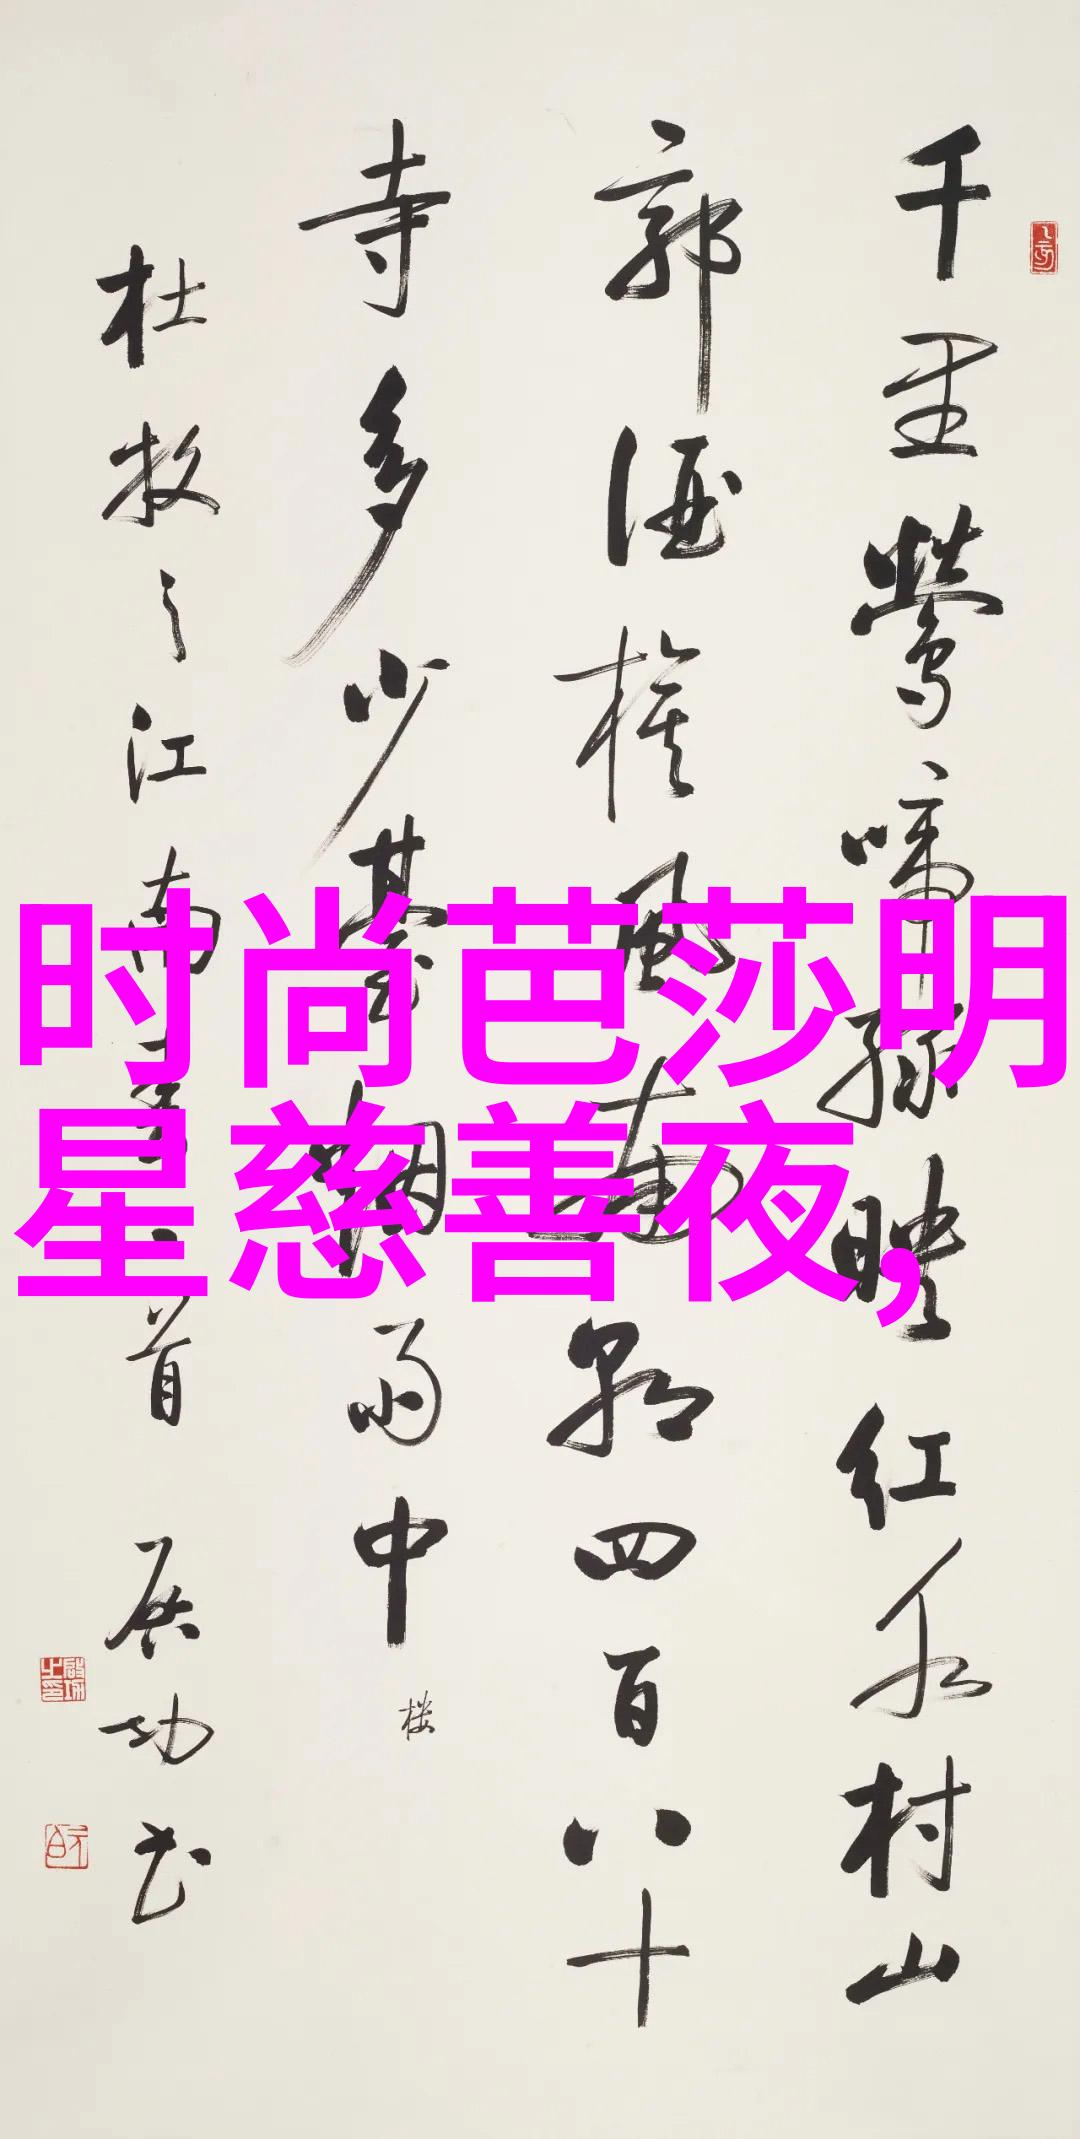 千里莺啼绿映红水村山
郭酒旗风南朝四百八十
寺多少台烟雨中
楼
杜牧之江南春一首 启功书
时尚芭莎明
星慈善夜,